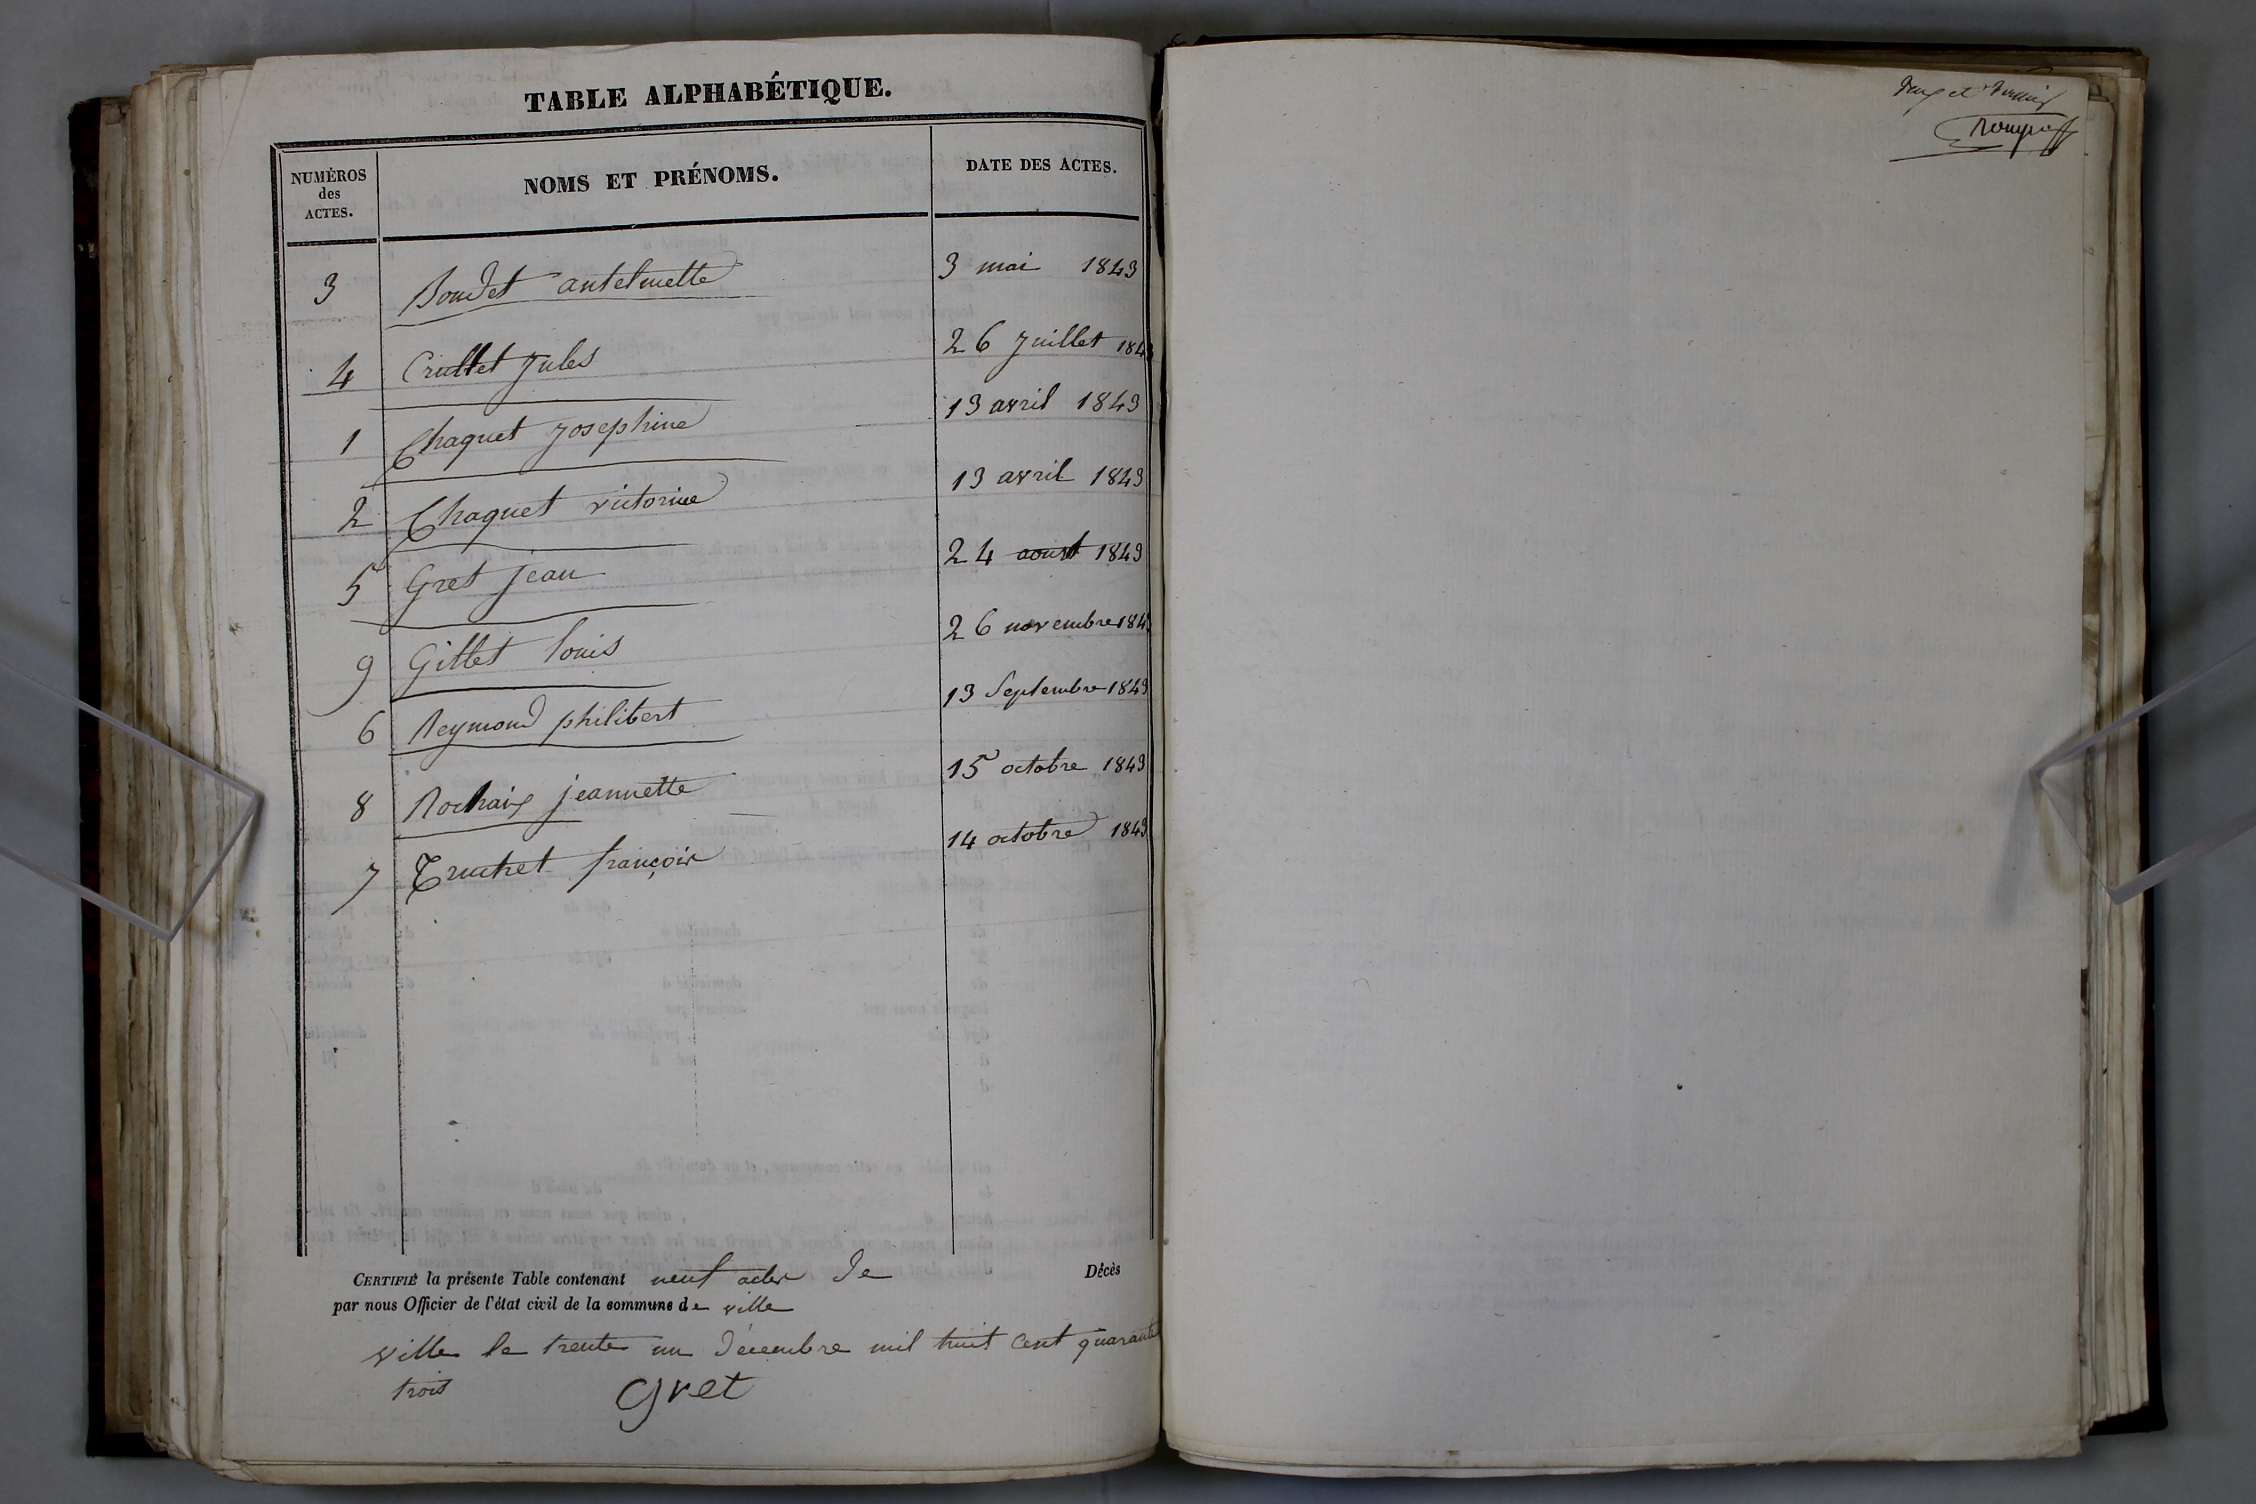 TABLE ALPHABÉTIQUE.
NUMÉROS
des
ACTES.
NOMS ET PRÉNOMS.
DATE DES ACTES.
3 Boudet antelmette 3 mai 1843
4 Crullet jules 26 juillet 184
1 Chaquet josephine 13 avril 1843
2 Chaquet victorine 13 avril 1843
5 Gret jean 24 aoust 1843
9 Gillet louis 26 novembre 184
6 Reymond philibert 13 Septembre 1843
8 Rochaix jeannette 15 octobre 1843
7 Truchet françois 14 octobre 1843
CERTIFIÉ la présente Table contenant neuf actes de Décès
par nous Officier de l'état civil de la commune de ville
ville le trente un décembre mil huit cent quarante
trois
Gret